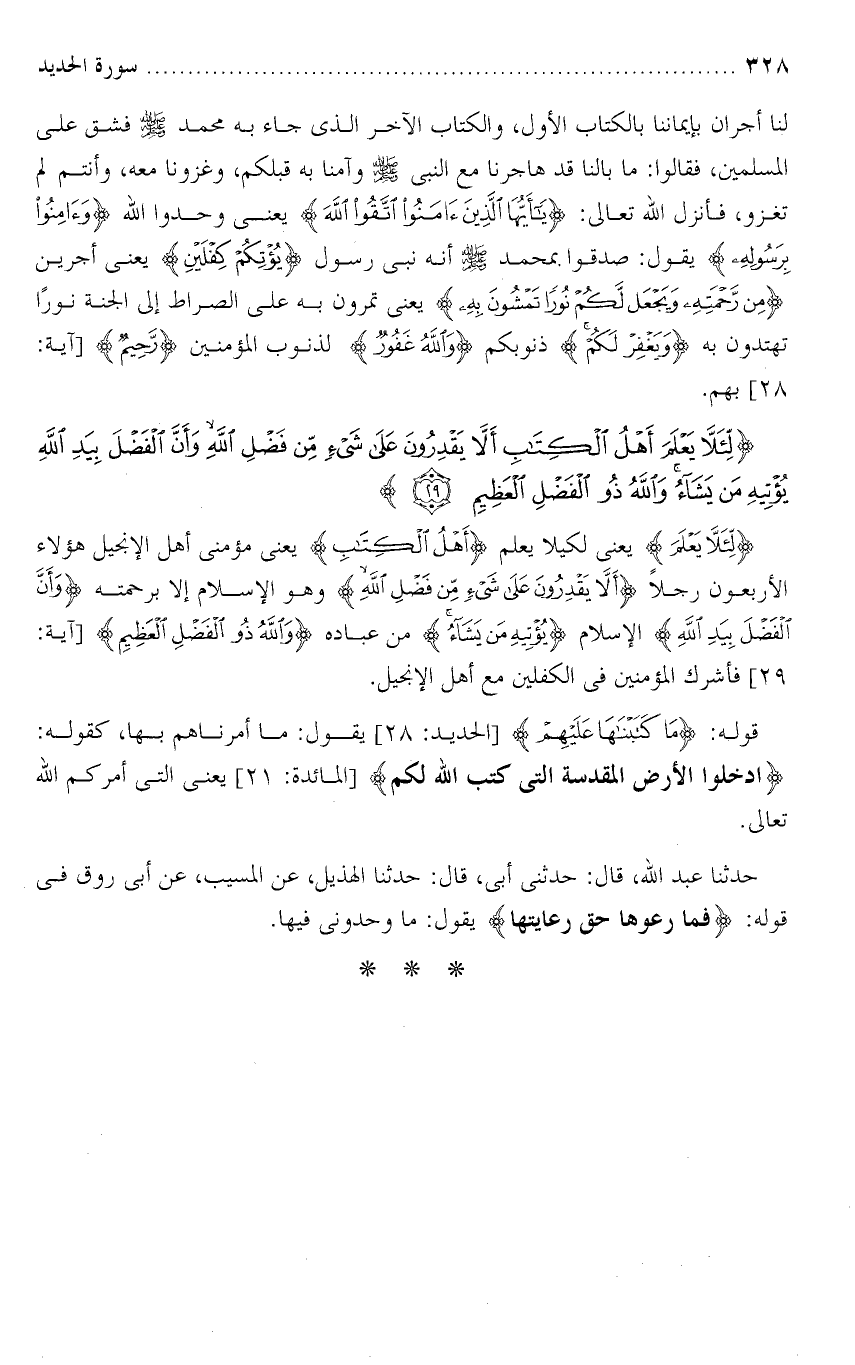 ٣٢٨ ........................................................................ سورة الحديد
لنا أجران بإيماننا بالكتاب الأول، والكتاب الآخر الذى جاء به محمد ﷺ فشق على
المسلمين، فقالوا: ما بالنا قد هاجرنا مع النبى ﷺ وآمنا به قبلكم، وغزونا معه، وأنتم لم
تغزو، فأنزل الله تعالى: ﴿يَٰٓأَيُّهَا ٱلَّذِينَ ءَامَنُوا۟ ٱتَّقُوا۟ ٱللَّهَ﴾ يعنى وحدوا الله ﴿وَءَامِنُوا۟
بِرَسُولِهِۦ﴾ يقول: صدقوا بمحمد ﷺ أنه نبى رسول ﴿يُؤْتِكُمْ كِفْلَيْنِ﴾ يعنى أجرين
﴿مِن رَّحْمَتِهِۦ وَيَجْعَل لَّكُمْ نُورًا تَمْشُونَ بِهِۦ﴾ يعنى تمرون به على الصراط إلى الجنة نورًا
تهتدون به ﴿وَيَغْفِرْ لَكُمْ ۚ﴾ ذنوبكم ﴿وَٱللَّهُ غَفُورٌ﴾ لذنوب المؤمنين ﴿رَّحِيمٌ﴾ [آية:
٢٨] بهم.
﴿لِّئَلَّا يَعْلَمَ أَهْلُ ٱلْكِتَٰبِ أَلَّا يَقْدِرُونَ عَلَىٰ شَىْءٍ مِّن فَضْلِ ٱللَّهِ ۙ وَأَنَّ ٱلْفَضْلَ بِيَدِ ٱللَّهِ
يُؤْتِيهِ مَن يَشَآءُ ۚ وَٱللَّهُ ذُو ٱلْفَضْلِ ٱلْعَظِيمِ ٢٩﴾
﴿لِّئَلَّا يَعْلَمَ﴾ يعنى لكيلا يعلم ﴿أَهْلُ ٱلْكِتَٰبِ﴾ يعنى مؤمنى أهل الإنجيل هؤلاء
الأربعون رجلاً ﴿أَلَّا يَقْدِرُونَ عَلَىٰ شَىْءٍ مِّن فَضْلِ ٱللَّهِ ۙ﴾ وهو الإسلام إلا برحمته ﴿وَأَنَّ
ٱلْفَضْلَ بِيَدِ ٱللَّهِ﴾ الإسلام ﴿يُؤْتِيهِ مَن يَشَآءُ ۚ﴾ من عباده ﴿وَٱللَّهُ ذُو ٱلْفَضْلِ ٱلْعَظِيمِ﴾ [آية:
٢٩] فأشرك المؤمنين فى الكفلين مع أهل الإنجيل.
قوله: ﴿مَا كَتَبْنَٰهَا عَلَيْهِمْ﴾ [الحديد: ٢٨] يقول: ما أمرناهم بها، كقوله:
﴿ادخلوا الأرض المقدسة التى كتب الله لكم﴾ [المائدة: ٢١] يعنى التى أمركم الله
تعالى.
حدثنا عبد الله، قال: حدثنى أبى، قال: حدثنا الهذيل، عن المسيب، عن أبى روق فى
قوله: ﴿فما رعوها حق رعايتها﴾ يقول: ما وحدونى فيها.
* * *